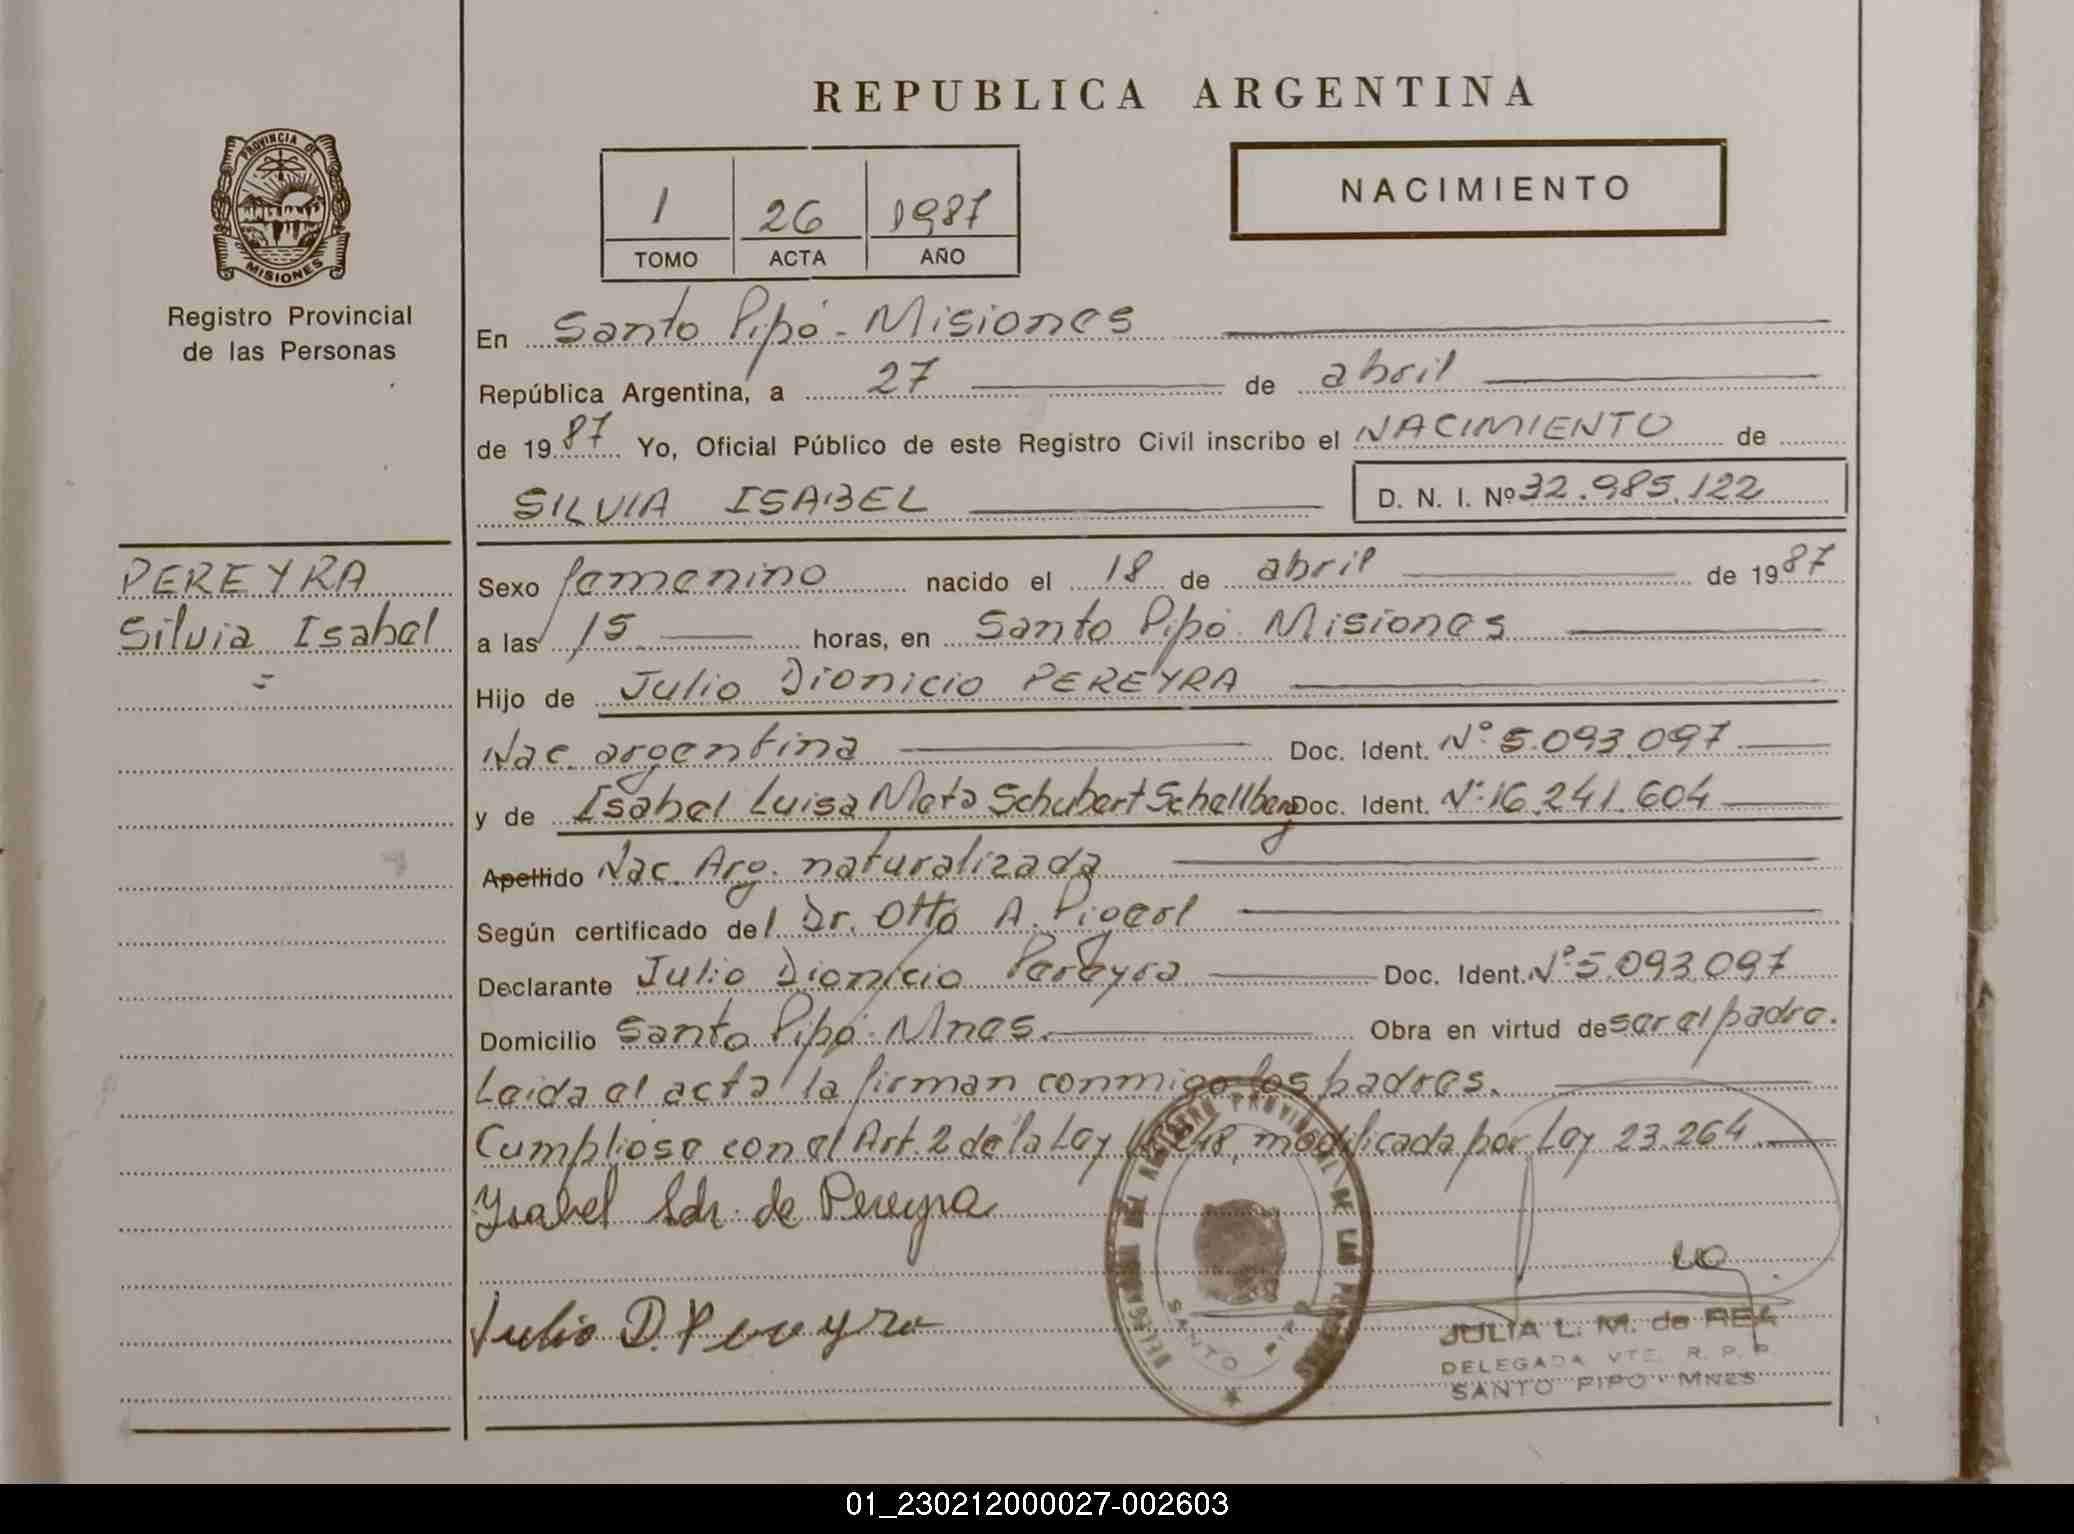 REPUBLICA ARGENTINA
PROVINCIA DE
MISIONES
Registro Provincial
de las Personas
1 26 1987
TOMO ACTA AÑO
NACIMIENTO
En Santo Pipó - Misiones
República Argentina, a 27 de abril
de 1987 Yo, Oficial Público de este Registro Civil inscribo el NACIMIENTO de
SILVIA ISABEL D. N. I. Nº 32.985.122
PEREYRA
Silvia Isabel
Sexo femenino nacido el 18 de abril de 1987
a las 15 horas, en Santo Pipó Misiones
Hijo de Julio Dionicio PEREYRA
Nac. argentina Doc. Ident. Nº 5.093.097
y de Isabel Luisa Meta Schubert Schellberg Doc. Ident. Nº 16.241.604
Apellido Nac. Arg. naturalizada
Según certificado del Dr. Otto A.
Declarante Julio Dionicio Pereyra Doc. Ident. Nº 5.093.097
Domicilio Santo Pipó - Mnes. Obra en virtud de ser el padre.
Leida el acta la firman conmigo los padres.
Cumpliose con el Art. 2 de la Ley modificada por Ley 23.264
Ysabel Sch. de Pereyra
Julio D. Pereyra
DELEGACION DEL REGISTRO PROVINCIAL DE LAS PERSONAS
SANTO PIPO
JULIA L. M. de REA
DELEGADA VTE. R. P. P.
SANTO PIPO - MNES
01_230212000027-002603